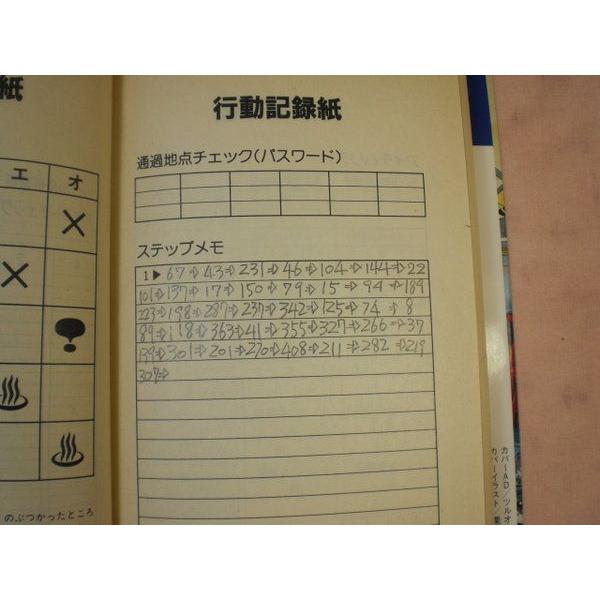 紙
エ
オ
のぶつかったところ
行動記録紙
通過地点チェック(パスワード)
ステップメモ
1▶67⇒43⇒231⇒46⇒104⇒144⇒22
101⇒137⇒17⇒150⇒79⇒15⇒94⇒189
223⇒198⇒287⇒237⇒342⇒125⇒74⇒8
89⇒118⇒363⇒41⇒355⇒327⇒266⇒37
139⇒301⇒201⇒270⇒408⇒211⇒282⇒219
307⇒
カバーAD/ツルオ
カバーイラスト/